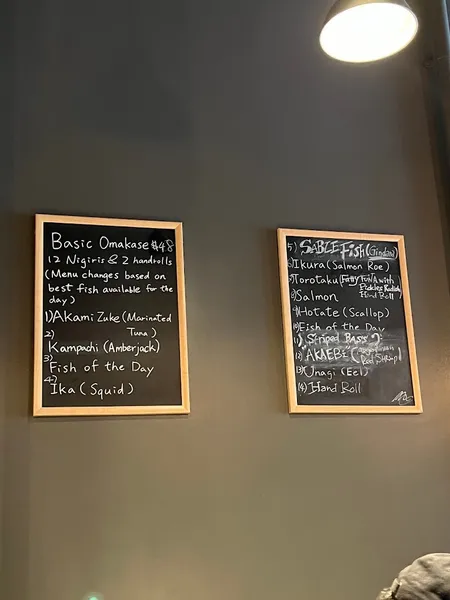 Basic Omakase $48
12 Nigiris & 2 handrolls
(Menu changes based on
best fish available for the
day)
1) Akami Zuke (Marinated
Tuna)
2)
Kampachi (Amberjack)
3)
Fish of the Day
4)
Ika (Squid)
5) SABLE Fish (Gindara)
6) Ikura (Salmon Roe)
7) Torotaku (Fatty Tuna with
Pickles Radish
Hand Roll
8) Salmon
9) Hotate (Scallop)
10) Fish of the Day
11) Striped Bass
12) AKAEBI (
Red Shrimp)
13) Unagi (Eel)
14) Hand Roll